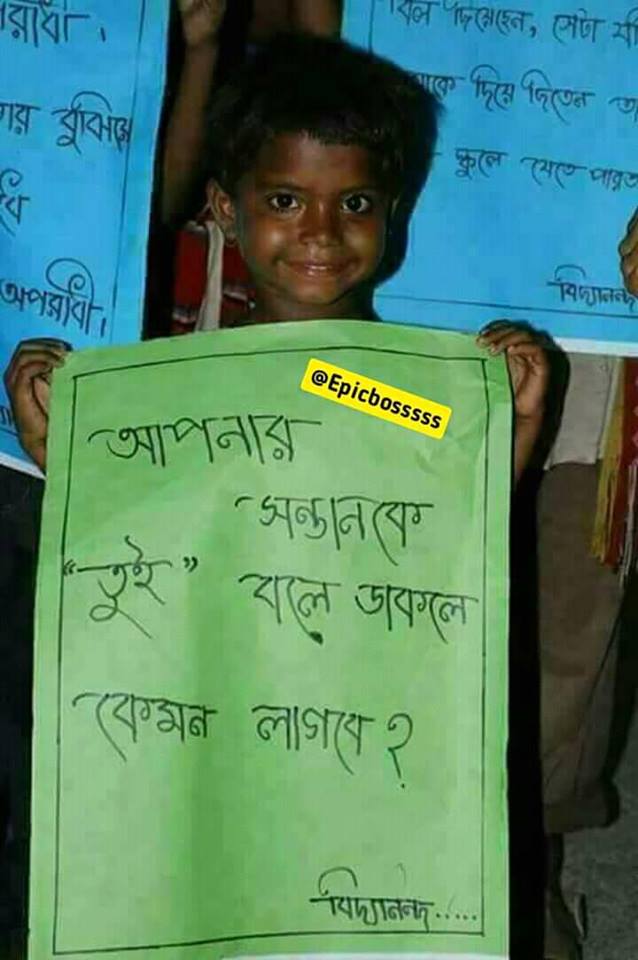 অপরাধী।
বুঝিয়ে
দিয়েছেন, সেটা
দিয়ে দিতেন
স্কুলে যেতে পারত
বিদ্যানন্দ
@Epicbosssss
আপনার
সন্তানকে
“তুই” বলে ডাকলে
কেমন লাগবে?
বিদ্যানন্দ.....